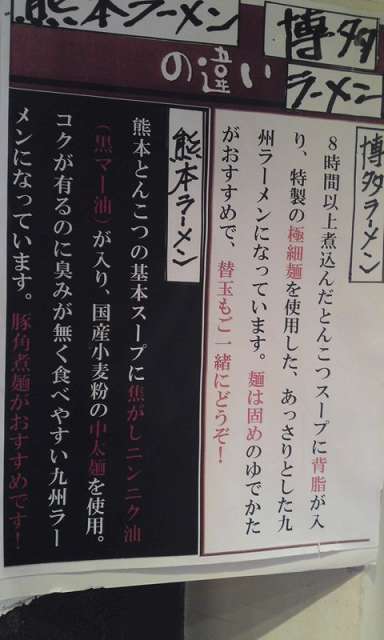 博多
ラーメン
熊本ラーメン
の違い
博多ラーメン
8時間以上煮込んだとんこつスープに背脂が入
り、特製の極細麺を使用した、あっさりとした九
州ラーメンになっています。麺は固めのゆでかた
がおすすめで、替玉もご一緒にどうぞ！
熊本ラーメン
熊本とんこつの基本スープに焦がしニンニク油
（黒マー油）が入り、国産小麦粉の中太麺を使用。
コクが有るのに臭みが無く食べやすい九州ラー
メンになっています。豚角煮麺がおすすめです！